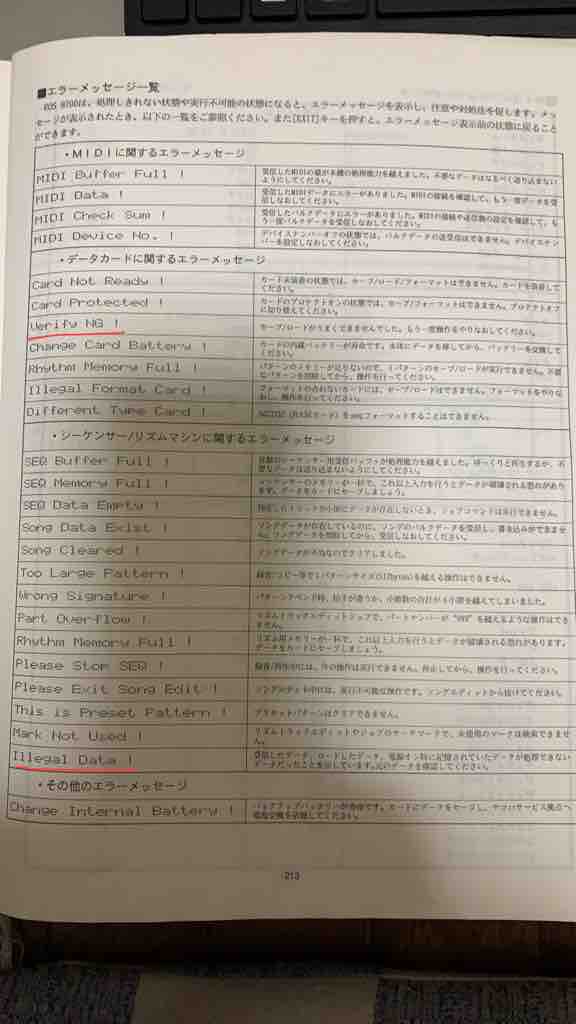 ■エラーメッセージ一覧
EOS B700は、処理しきれない状態や実行不可能の状態になると、エラーメッセージを表示し、注意や対処法を促します。メッ
セージが表示されたとき、以下の一覧をご参照ください。また[EXIT]キーを押すと、エラーメッセージ表示前の状態に戻ること
ができます。
・MIDIに関するエラーメッセージ
MIDI Buffer Full !
受信したMIDIの量が本機の処理能力を越えました。不要なデータはなるべく送り込まない
ようにしてください。
MIDI Data !
受信したMIDIデータにエラーがありました。MIDIの接続を確認して、もう一度データを受
信しなおしてください。
MIDI Check Sum !
受信したバルクデータにエラーがありました。MIDIの接続や送信側の設定を確認して、も
う一度バルクデータを受信しなおしてください。
MIDI Device No. !
デバイスナンバーオフの状態では、バルクデータの送受信はできません。デバイスナン
バーを設定しなおしてください。
・データカードに関するエラーメッセージ
Card Not Ready !
カード未装着の状態では、セーブ/ロード/フォーマットはできません。カードを装着して
ください。
Card Protected !
カードのプロテクトオンの状態では、セーブ/フォーマットはできません。プロテクトオフ
に切り替えてください。
Verify NG !
セーブ/ロードがうまくできませんでした。もう一度操作をやりなおしてください。
Change Card Battery !
カードの内蔵バッテリーが寿命です。本体にデータを移してから、バッテリーを交換して
ください。
Rhythm Memory Full !
パターンのメモリーが足りないので、1パターンのセーブ/ロードが実行できません。不要
なパターンを削除してから、操作を行ってください。
Illegal Format Card !
フォーマットの合わないカードには、セーブ/ロードはできません。フォーマットをやりな
おし、操作を行ってください。
Different Type Card !
(RAMカード)をseqフォーマットすることはできません。
・シーケンサー/リズムマシンに関するエラーメッセージ
SEQ Buffer Full !
SEQ Memory Full !
シーケンサーのメモリーが一杯で、これ以上入力を行うとデータが破壊される恐れがあり
ます。データをカードにセーブしましょう。
SEQ Data Empty !
Song Data Exist !
ソングデータが存在しているのに、ソングのバルクデータを受信し、書き込みができませ
ん。ソングデータを削除してから、受信しなおしてください。
Song Cleared !
ソングデータが不当なのでクリアしました。
Too Large Pattern !
Wrong Signature !
パターンアペンド時、拍子が違うか、小節数の合計が4小節を越えてしまいました。
Part Overflow !
Rhythm Memory Full !
リズム用メモリーが一杯で、これ以上入力を行うとデータが破壊される恐れがあります。
データをカードにセーブしましょう。
Please Stop SEQ !
録音/再生中には、今の操作は実行できません。停止してから、操作を行ってください。
Please Exit Song Edit !
ソングエディト中には、実行不可能な操作です。ソングエディットから抜けてください。
This is Preset Pattern !
プリセットパターンはクリアできません。
Mark Not Used !
リズムトラックエディットやジョブのサーチマークで、未使用のマークは検索できませ
ん。
Illegal Data !
受信したデータ、ロードしたデータ、電源オン時に記憶されていたデータが処理できない
データだったことを示しています。元のデータを確認してください。
・その他のエラーメッセージ
Change Internal Battery !
バックアップバッテリーが寿命です。カードにデータをセーブし、ヤマハサービス拠点へ
電池交換を依頼してください。
213